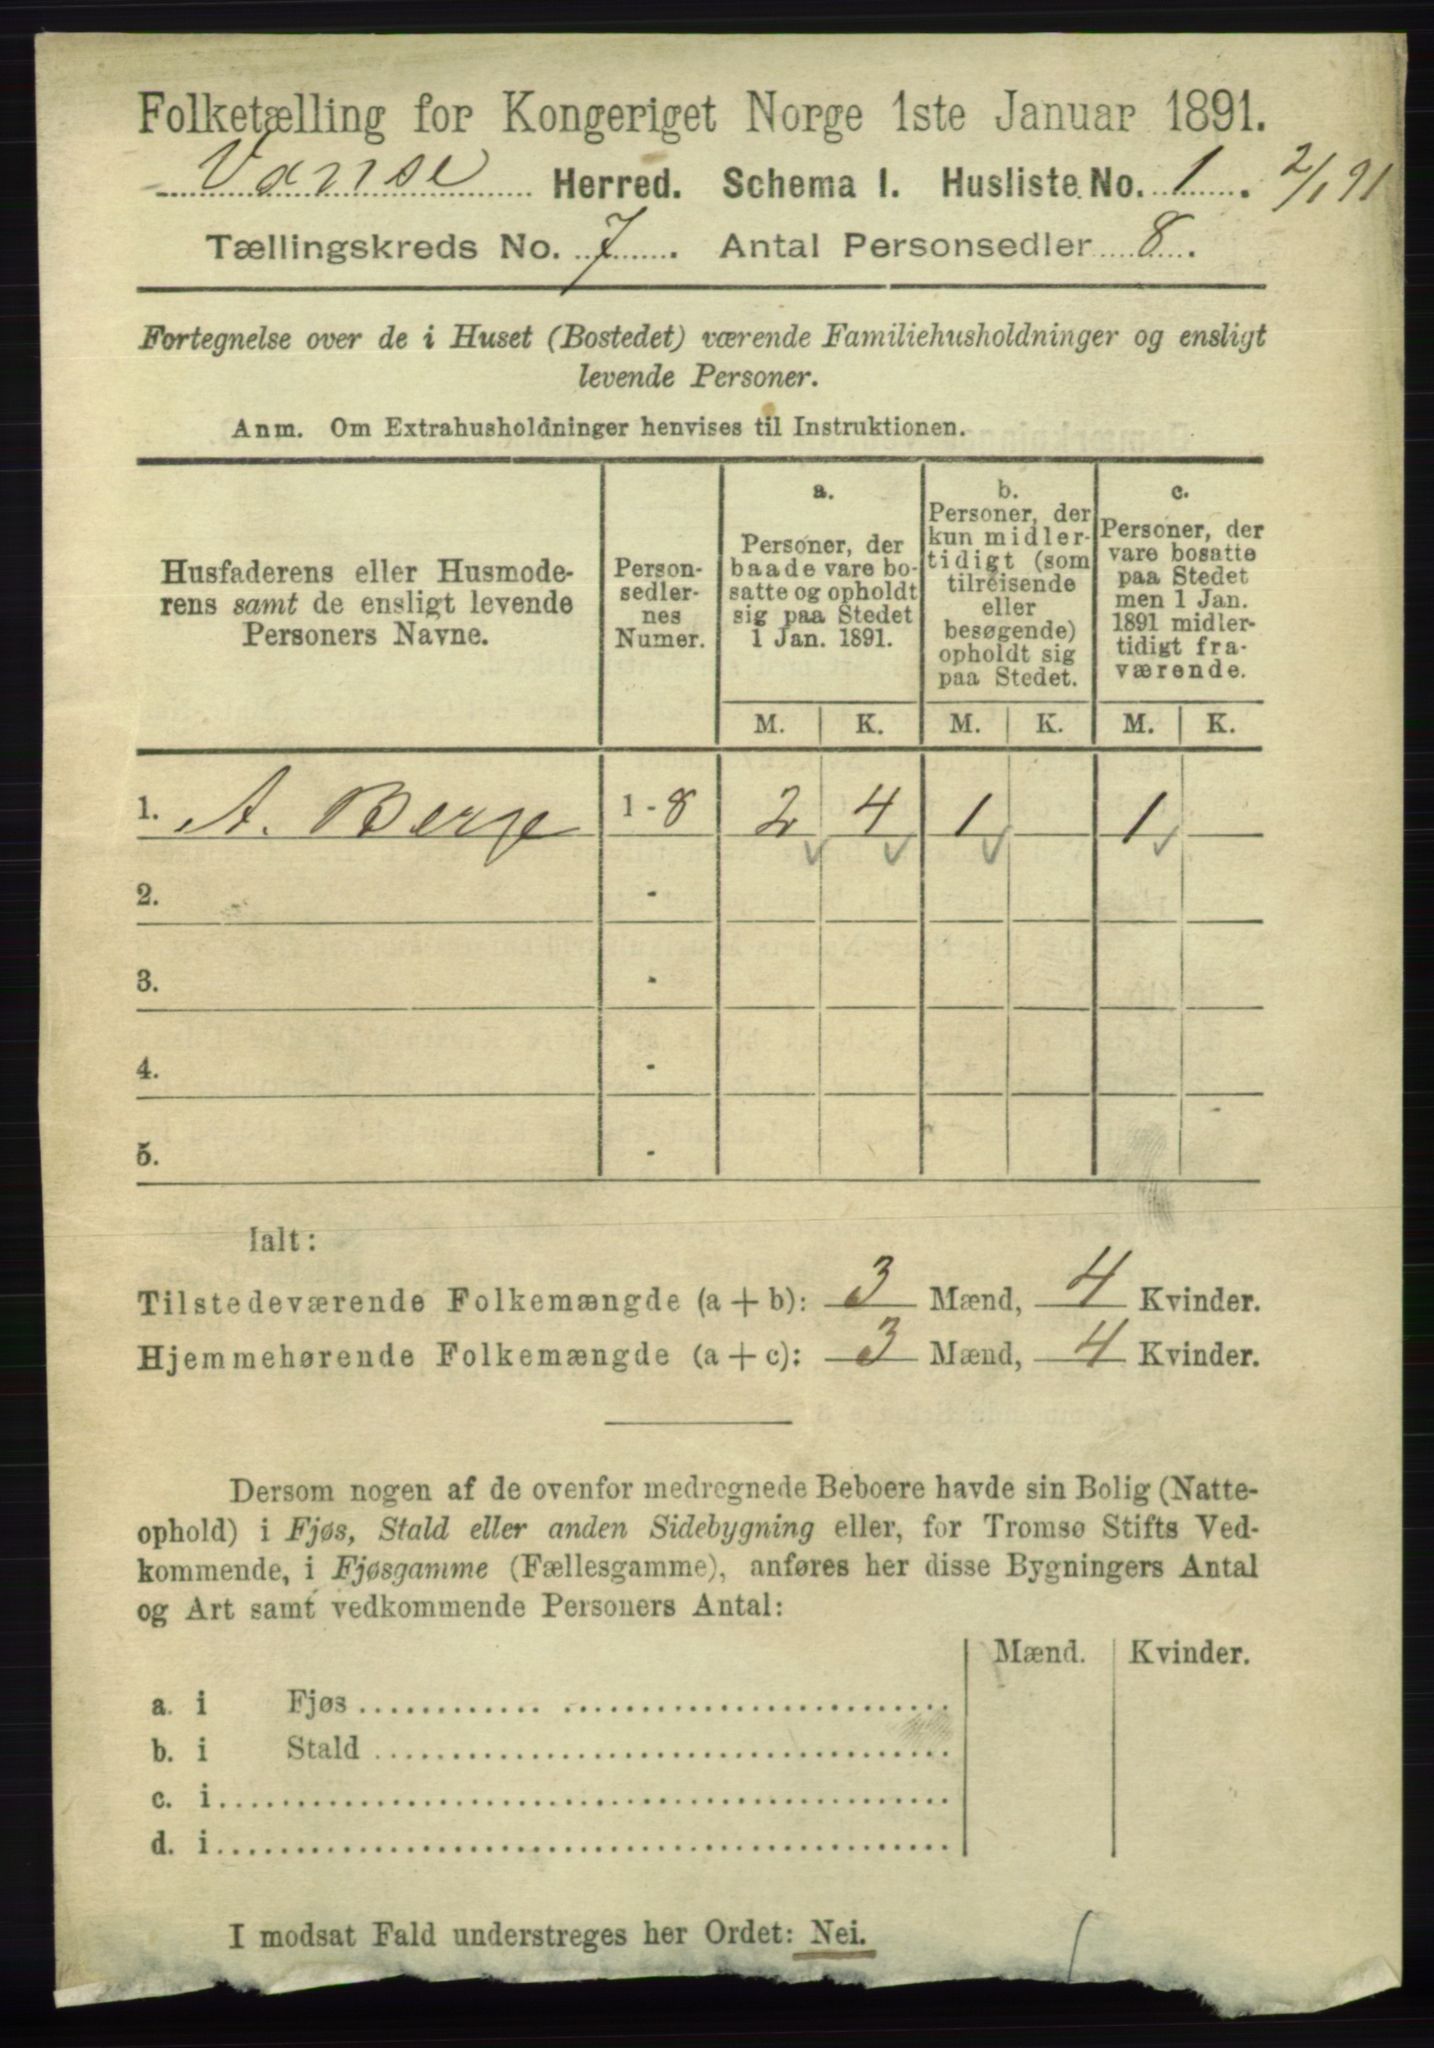 Folketælling for Kongeriget Norge 1ste Januar 1891.
Vanse Herred. Schema I. Husliste No. 1. 2/1 91
Tællingskreds No. 7. Antal Personsedler 8.
Fortegnelse over de i Huset (Bostedet) værende Familiehusholdninger og ensligt
levende Personer.
Anm. Om Extrahusholdninger henvises til Instruktionen.
Husfaderens eller Husmode-
rens samt de ensligt levende
Personers Navne.
Person-
sedler-
nes
Numer.
a.
Personer, der
baade vare bo-
satte og opholdt
sig paa Stedet
1 Jan. 1891.
b.
Personer, der
kun midler-
tidigt (som
tilreisende
eller
besøgende)
opholdt sig
paa Stedet.
c.
Personer, der
vare bosatte
paa Stedet
men 1 Jan.
1891 midler-
tidigt fra-
værende.
M. K. M. K. M. K.
1. A. Berge 1 - 8 2 4 1 1
2. -
3. -
4. -
5. -
Ialt:
Tilstedeværende Folkemængde (a + b): 3 Mænd, 4 Kvinder.
Hjemmehørende Folkemængde (a + c): 3 Mænd, 4 Kvinder.
Dersom nogen af de ovenfor medregnede Beboere havde sin Bolig (Natte-
ophold) i Fjøs, Stald eller anden Sidebygning eller, for Tromsø Stifts Ved-
kommende, i Fjøsgamme (Fællesgamme), anføres her disse Bygningers Antal
og Art samt vedkommende Personers Antal:
Mænd. Kvinder.
a. i Fjøs
b. i Stald
c. i
d. i
I modsat Fald understreges her Ordet: Nei.